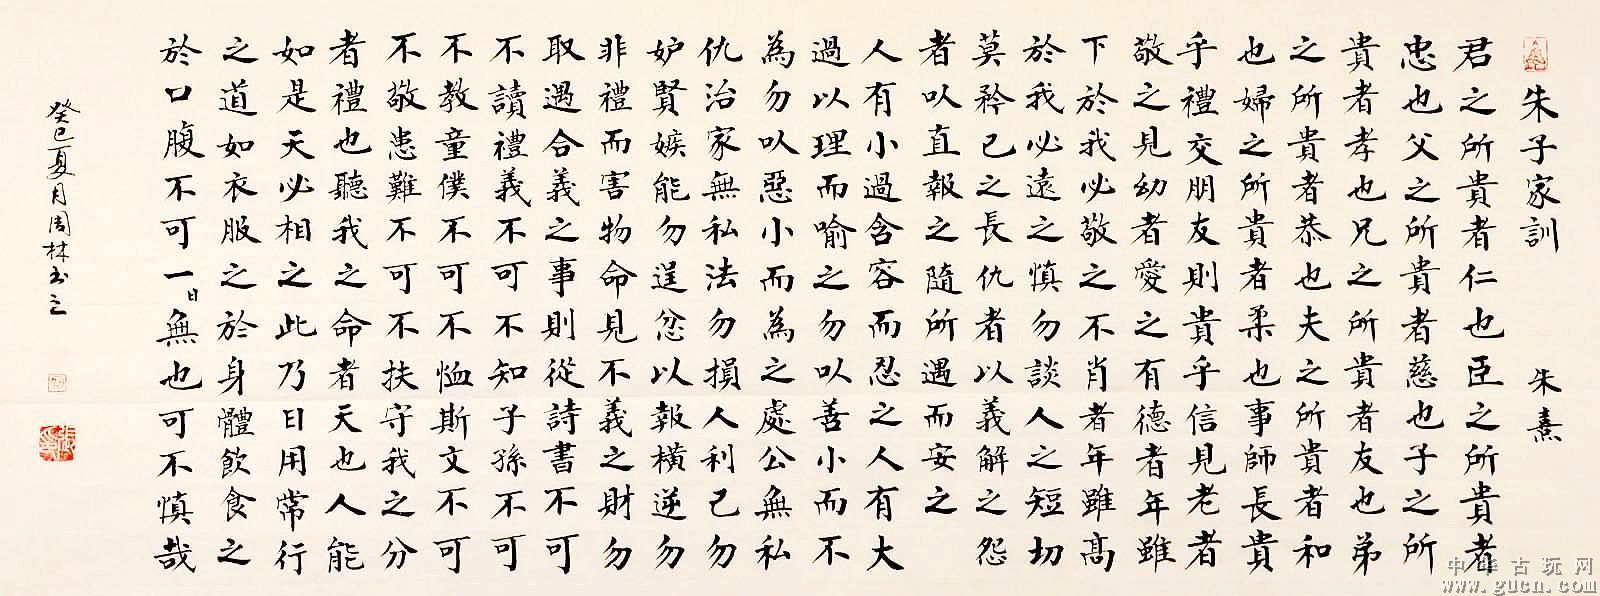 朱子家訓 朱熹
君之所貴者仁也臣之所貴者
忠也父之所貴者慈也子之所
貴者孝也兄之所貴者友也弟
之所貴者恭也夫之所貴者和
也婦之所貴者柔也事師長貴
乎禮交朋友則貴乎信見老者
敬之見幼者愛之有德者年雖
下於我必敬之不肖者年雖高
於我必遠之慎勿談人之短切
莫矜己之長仇者以義解之怨
者以直報之隨所遇而安之
人有小過含容而忍之人有大
過以理而喻之勿以善小而不
為勿以惡小而為之處公無私
仇治家無私法勿損人利己勿
妒賢嫉能勿逞忿以報橫逆勿
非禮而害物命見不義之財勿
取遇合義之事則從詩書不可
不讀禮義不可不知子孫不可
不教童僕不可不恤斯文不可
不敬患難不可不扶守我之分
者禮也聽我之命者天也人能
如是天必相之此乃日用常行
之道如衣服之於身體飲食之
於口腹不可一日無也可不慎哉
癸巳夏月周林书之
中华古玩网
www.gucn.com